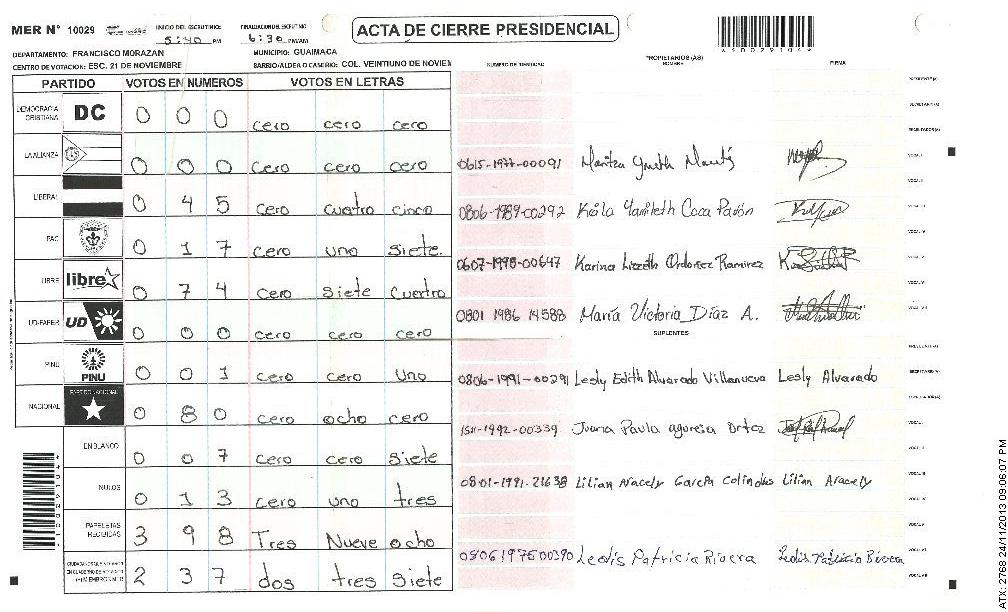 MER N° 10029 INICIO DEL ESCRUTINIO: 5:40 PM FINALIZACION DEL ESCRUTINIO 6:30 PM/AM ACTA DE CIERRE PRESIDENCIAL
DEPARTAMENTO: FRANCISCO MORAZAN MUNICIPIO: GUAIMACA
CENTRO DE VOTACION: ESC. 21 DE NOVIEMBRE BARRIO/ALDEA O CASERIO: COL. VEINTIUNO DE NOVIEM
NUMERO DE IDENTIDAD PROPIETARIOS (AS) NOMBRE FIRMA
PARTIDO VOTOS EN NUMEROS VOTOS EN LETRAS
DEMOCRACIA CRISTIANA DC 0 0 0 cero cero cero
LA ALIANZA 0 0 0 cero cero cero
LIBERAL 0 4 5 cero cuatro cinco
PAC 0 1 7 cero uno siete
LIBRE libre 0 7 4 cero siete cuatro
UD-FAPER UD 0 0 0 cero cero cero
PINU PINU 0 0 1 cero cero uno
NACIONAL PARTIDO NACIONAL 0 8 0 cero ocho cero
EN BLANCO 0 0 7 cero cero siete
NULOS 0 1 3 cero uno tres
PAPELETAS RECIBIDAS 3 9 8 Tres Nueve ocho
2 3 7 dos tres siete
0615-1977-00091 Maritza
0806-1989-00292 Keila Yamileth Coca Pavón
0607-1998-00647 Karina Lizeth Ordoñez Ramirez
0801 1986 14588 María Victoria Díaz A.
SUPLENTES
0806-1991-00291 Lesly Edith Alvarado Villanueva Lesly Alvarado
1511-1992-00339 Juana Paula
0801-1991-21638 Lilian Aracely Garcia Colindres Lilian Aracely
0806197500390 Leodis Patricia Rivera Leodis Patricia Rivera
ATX: 2768 24/11/2013 09:06:07 PM